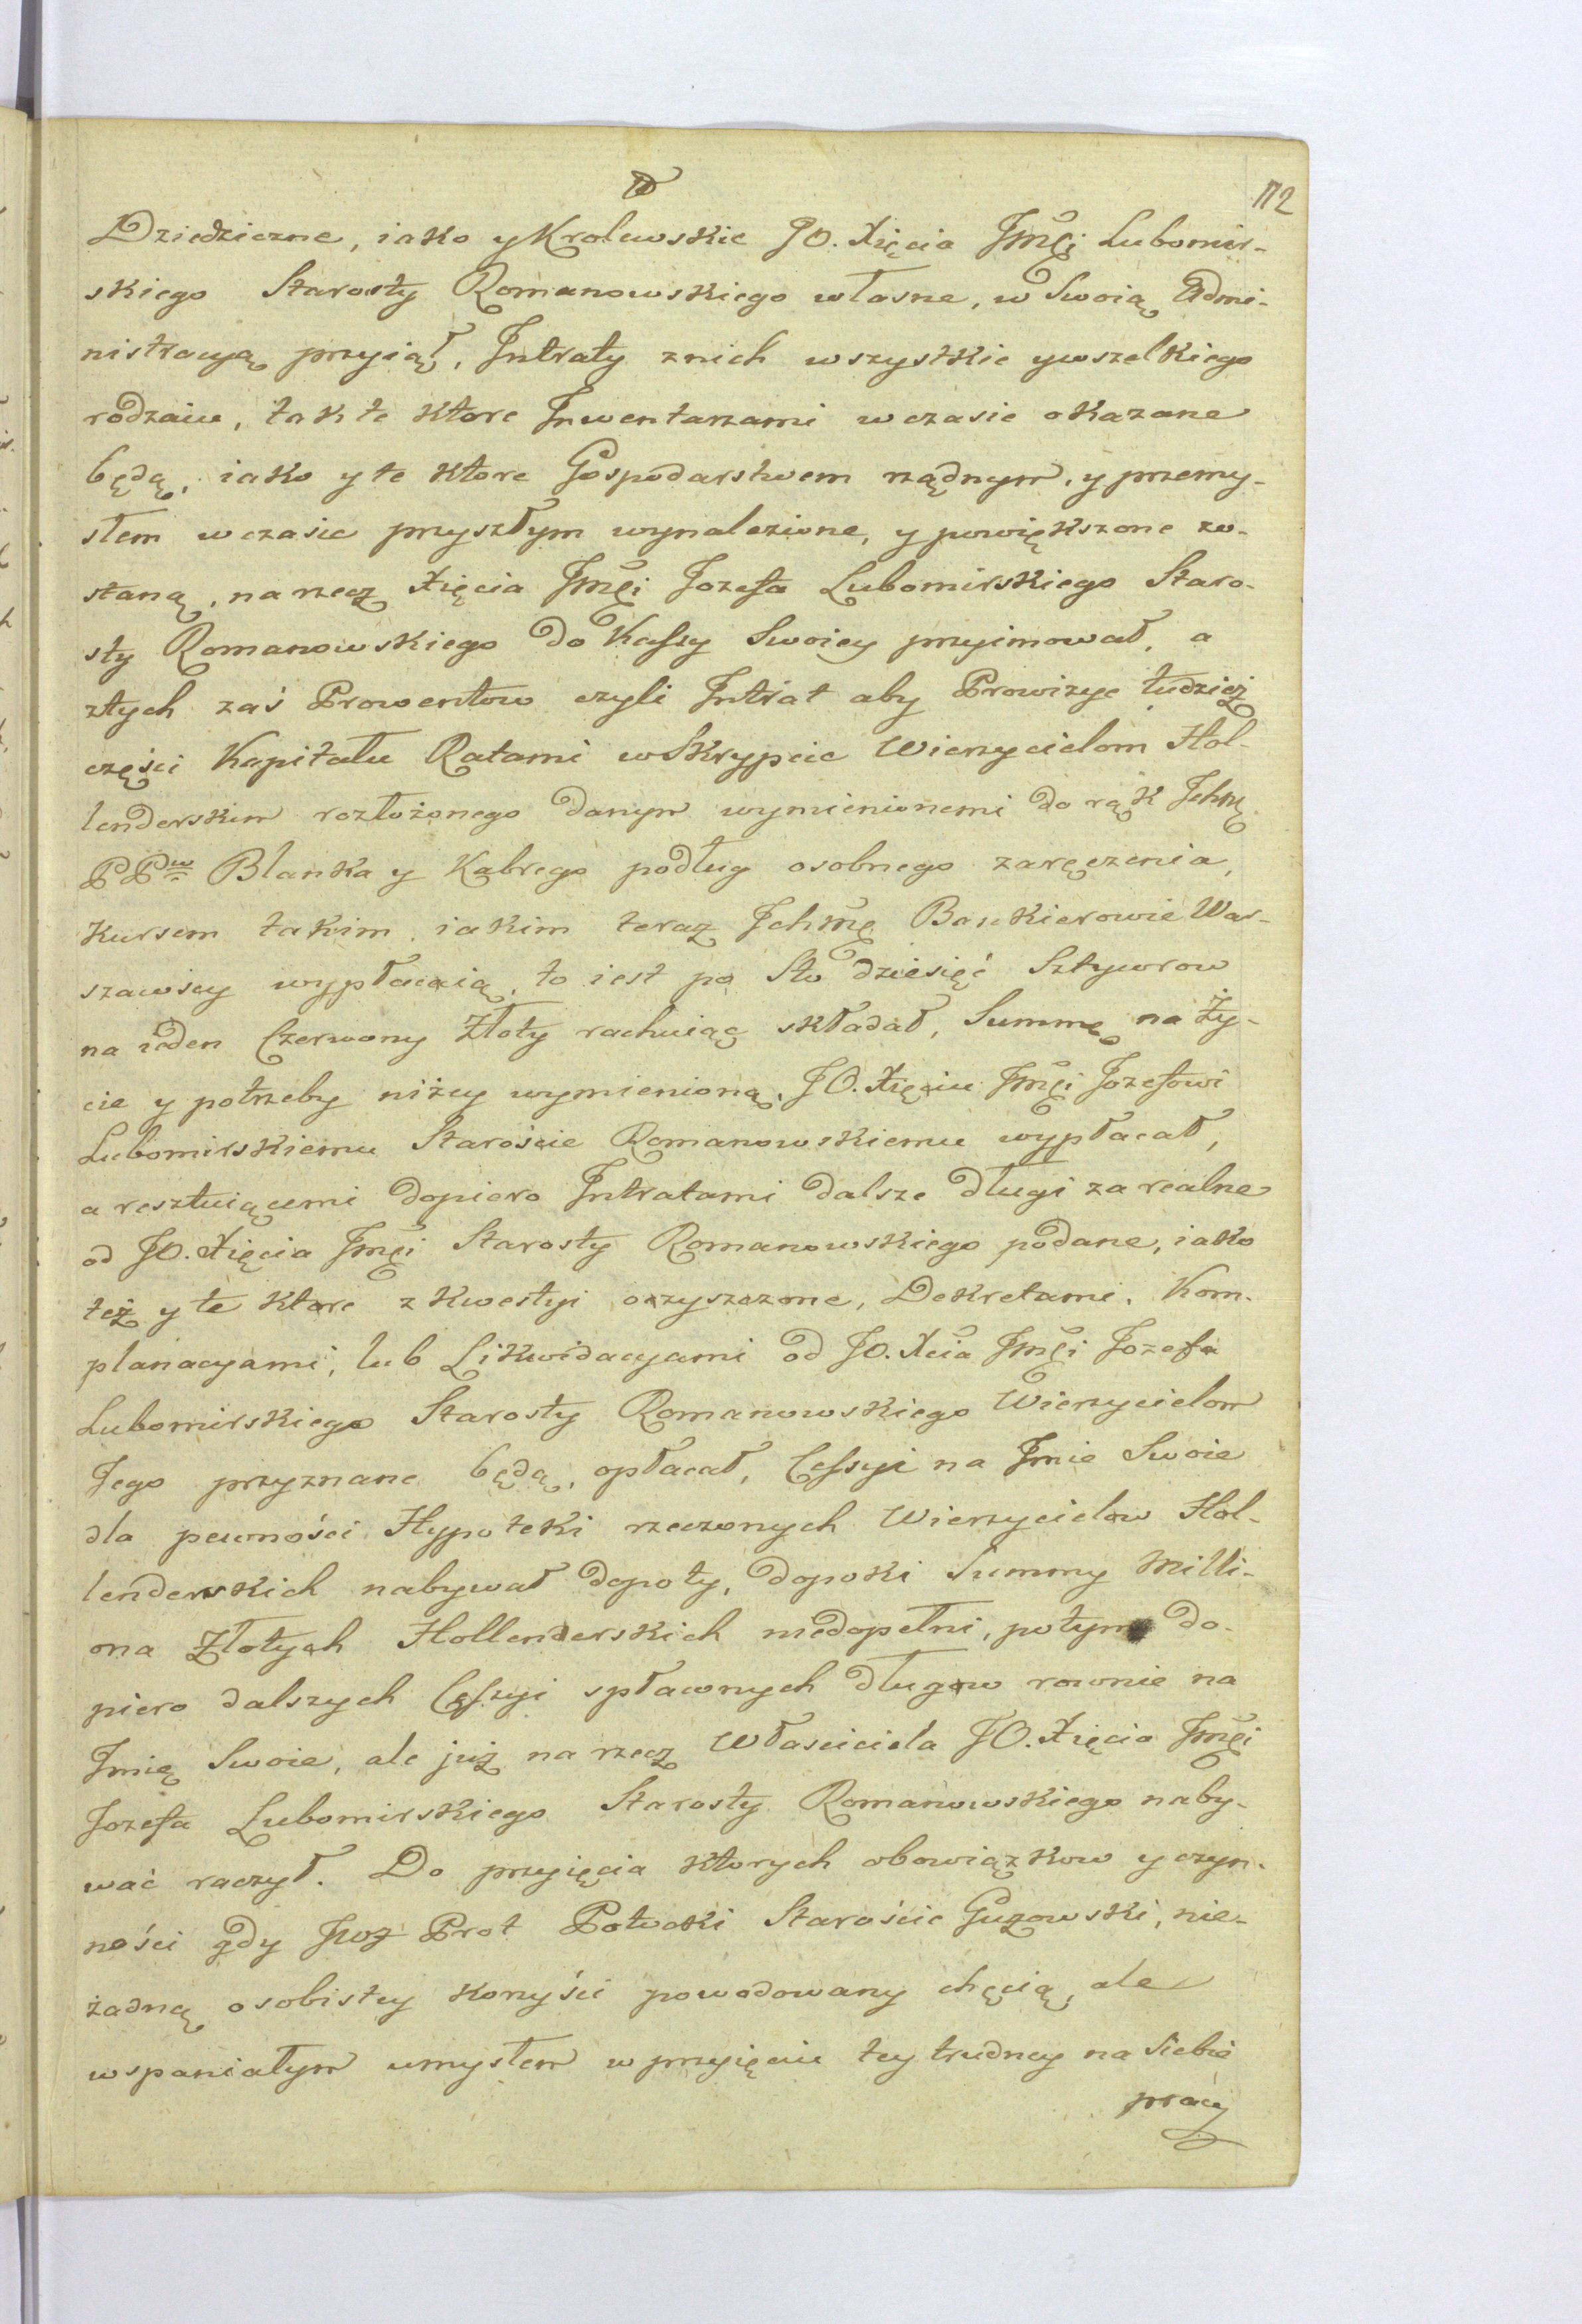 112
Dziedziczne, iako y Krolewskie JO. Xięcia Jmći Lubomir-
skiego Starosty Romanowskiego własne, w Swoią Admi-
nistracyą przyiął, Intraty z nich wszystkie y wszelkiego
rodzaiu, tak te ktore Inwentarzami w czasie okazane
będą, iako y te ktore Gospodarstwem rządnym, y przemy-
słem w czasie przyszłym wynalezione, y powiększone zo-
staną, na rzecz Xięcia Jmći Jozefa Lubomirskiego Staro-
sty Romanowskiego do Kassy Swoiey przyimował, a
z tych zaś Prowentow czyli Intrat aby Prowizye tudzież
części Kapitału Ratami w Skrypcie Wierzycielom Hol-
lenderskim rozłożonego danym wymienionemi do rąk Ichmć
PPw Blanka y Kabrego podług osobnego zaręczenia,
Kursem takim, iakim teraz Ichmć Bankierowie War-
szawscy wypłacaią, to iest po Sto dziesięć Sztywrow
na ieden Czerwony Złoty rachuiąc składał, Summę na Ży-
cie y potrzeby niżey wymienioną, JO. Xięciu Jmći Jozefowi
Lubomirskiemu Staroście Romanowskiemu wypłacał,
a resztuiącemi dopiero Intratami dalsze długi za realne
od JO. Xięcia Jmći Starosty Romanowskiego podane, iako
też y te ktore z kwestyi oczyszczone, Dekretami, Kom-
planacyami, lub Likwidacyami od JO. Xcia Jmći Jozefa
Lubomirskiego Starosty Romanowskiego Wierzycielom
Jego przyznane będą, opłacał, Cessyi na Jmie Swoie
dla pewności Hypoteki rzeczonych Wierzycielow Hol-
lenderskich nabywał dopoty, dopoki Summy Milli-
ona Złotych Hollenderskich niedopełni, potym do-
piero dalszych Cessyi spławnych długow rownie na
Jmię Swoie, ale już na rzecz Właściciela JO. Xięcia Jmći
Jozefa Lubomirskiego Starosty Romanowskiego naby-
wać raczył. Do przyięcia ktorych obowiązkow y czyn-
ności gdy JWJ Prot Potocki Staroście Guzowski, nie-
żadną osobistey korzyści powodowany chęcią, ale
wspaniałym umysłem w przyięciu tey trudney na siebie
pracy